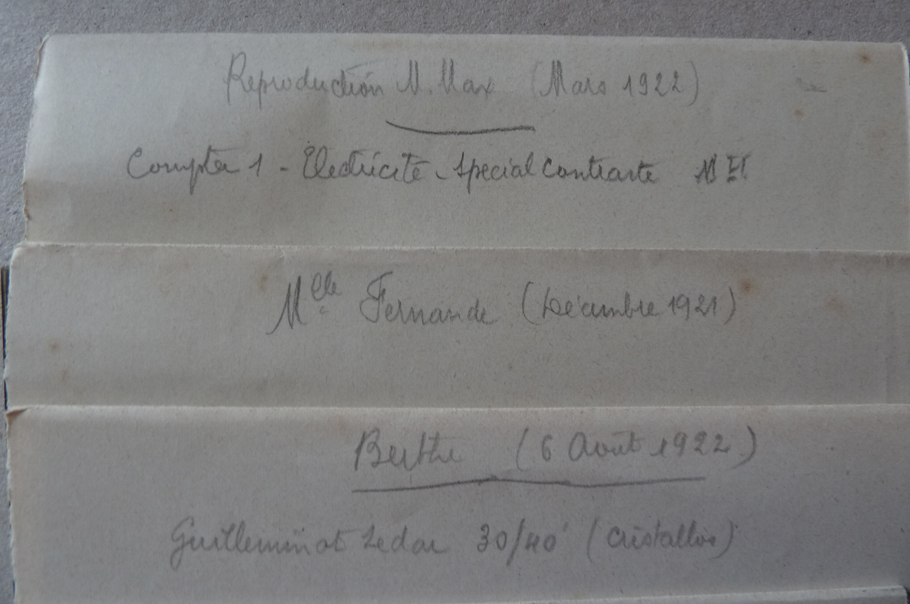 Reproduction M. Max (Mars 1922)
Compter 1 - Electricité - Special Contraste
Mlle Fernande (Décembre 1921)
Berthe (6 Août 1922)
Guilleminot Ledar 30/40' (Cristallos)